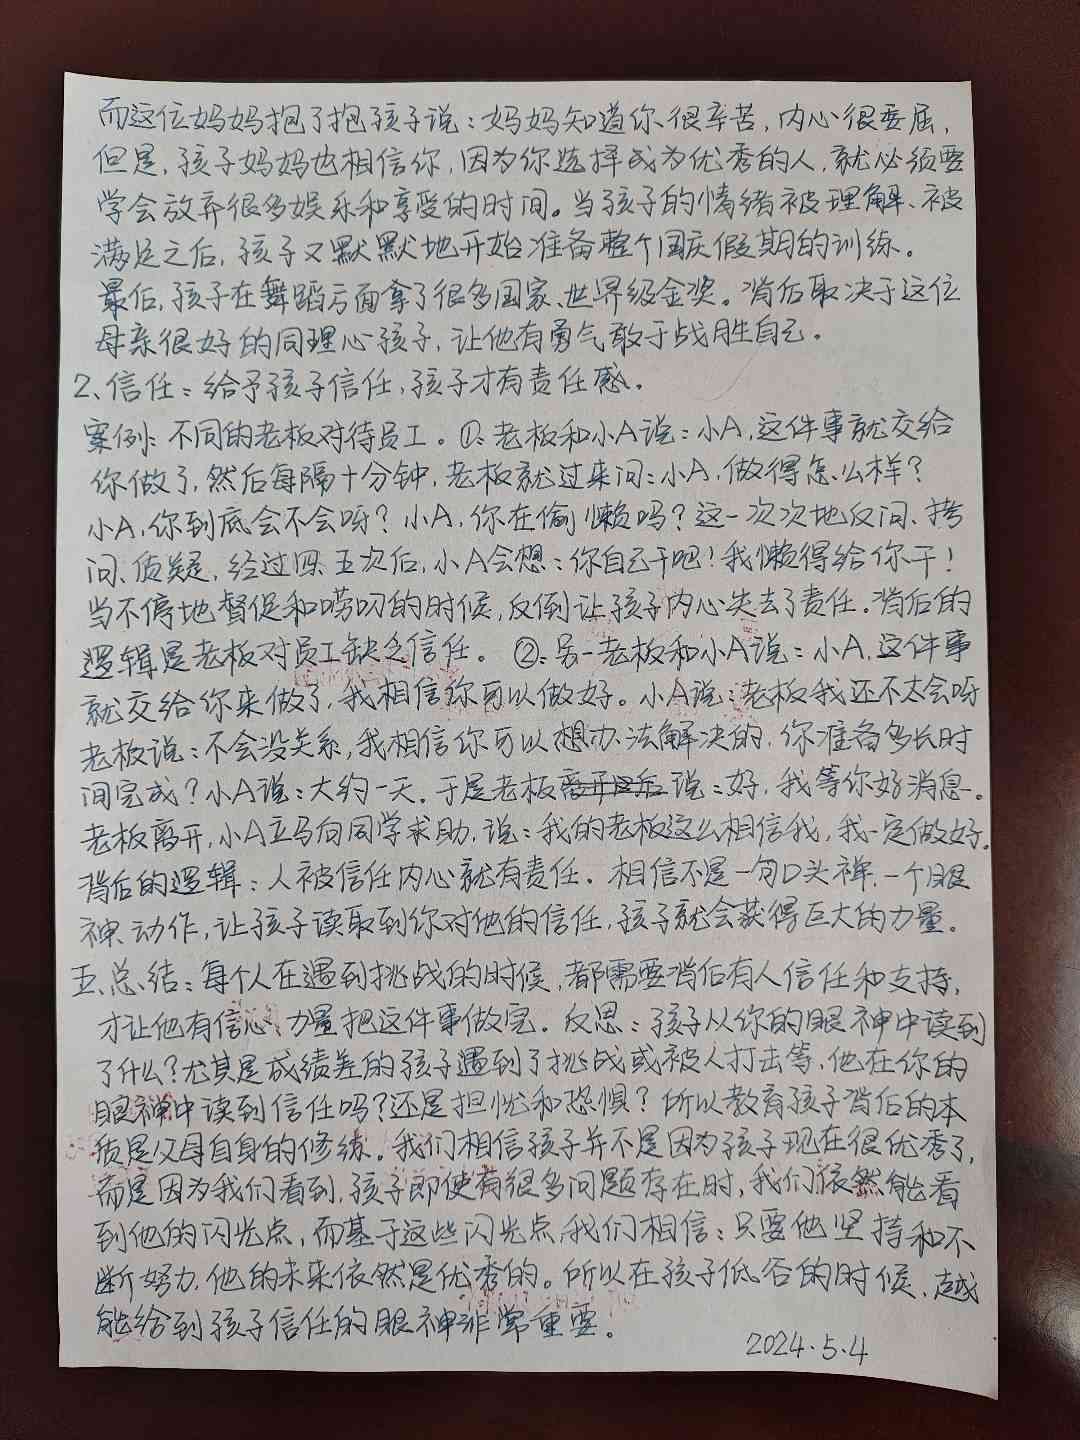 而这位妈妈抱了抱孩子说：妈妈知道你很辛苦，内心很委屈，
但是，孩子妈妈也相信你，因为你选择成为优秀的人，就必须要
学会放弃很多娱乐和享受的时间。当孩子的情绪被理解、被
满足之后，孩子又默默地开始准备整个国庆假期的训练。
最后，孩子在舞蹈方面拿了很多国家、世界级金奖。背后取决于这位
母亲很好的同理心孩子，让他有勇气敢于战胜自己。
2、信任：给予孩子信任，孩子才有责任感。
案例：不同的老板对待员工。①：老板和小A说：小A，这件事就交给
你做了，然后每隔十分钟，老板就过来问：小A，做得怎么样？
小A，你到底会不会呀？小A，你在偷懒吗？这一次次地反问、拷
问、质疑，经过四、五次后，小A会想：你自己干吧！我懒得给你干！
当不停地督促和唠叨的时候，反倒让孩子内心失去了责任。背后的
逻辑是老板对员工缺乏信任。②：另一老板和小A说：小A，这件事
就交给你来做了，我相信你可以做好。小A说：老板我还不太会呀
老板说：不会没关系，我相信你可以想办法解决的，你准备多长时
间完成？小A说：大约一天。于是老板说：好，我等你好消息。
老板离开，小A立马向同学求助，说：我的老板这么相信我，我一定做好。
背后的逻辑：人被信任内心就有责任。相信不是一句口头禅，一个眼
神、动作，让孩子读取到你对他的信任，孩子就会获得巨大的力量。
五、总结：每个人在遇到挑战的时候，都需要背后有人信任和支持，
才让他有信心、力量把这件事做完。反思：孩子从你的眼神中读到
了什么？尤其是成绩差的孩子遇到了挑战或被人打击等，他在你的
眼神中读到信任吗？还是担忧和恐惧？所以教育孩子背后的本
质是父母自身的修练。我们相信孩子并不是因为孩子现在很优秀了，
而是因为我们看到，孩子即使有很多问题存在时，我们依然能看
到他的闪光点，而基于这些闪光点，我们相信：只要他坚持和不
断努力，他的未来依然是优秀的。所以在孩子低谷的时候，越
能给到孩子信任的眼神非常重要。
2024.5.4